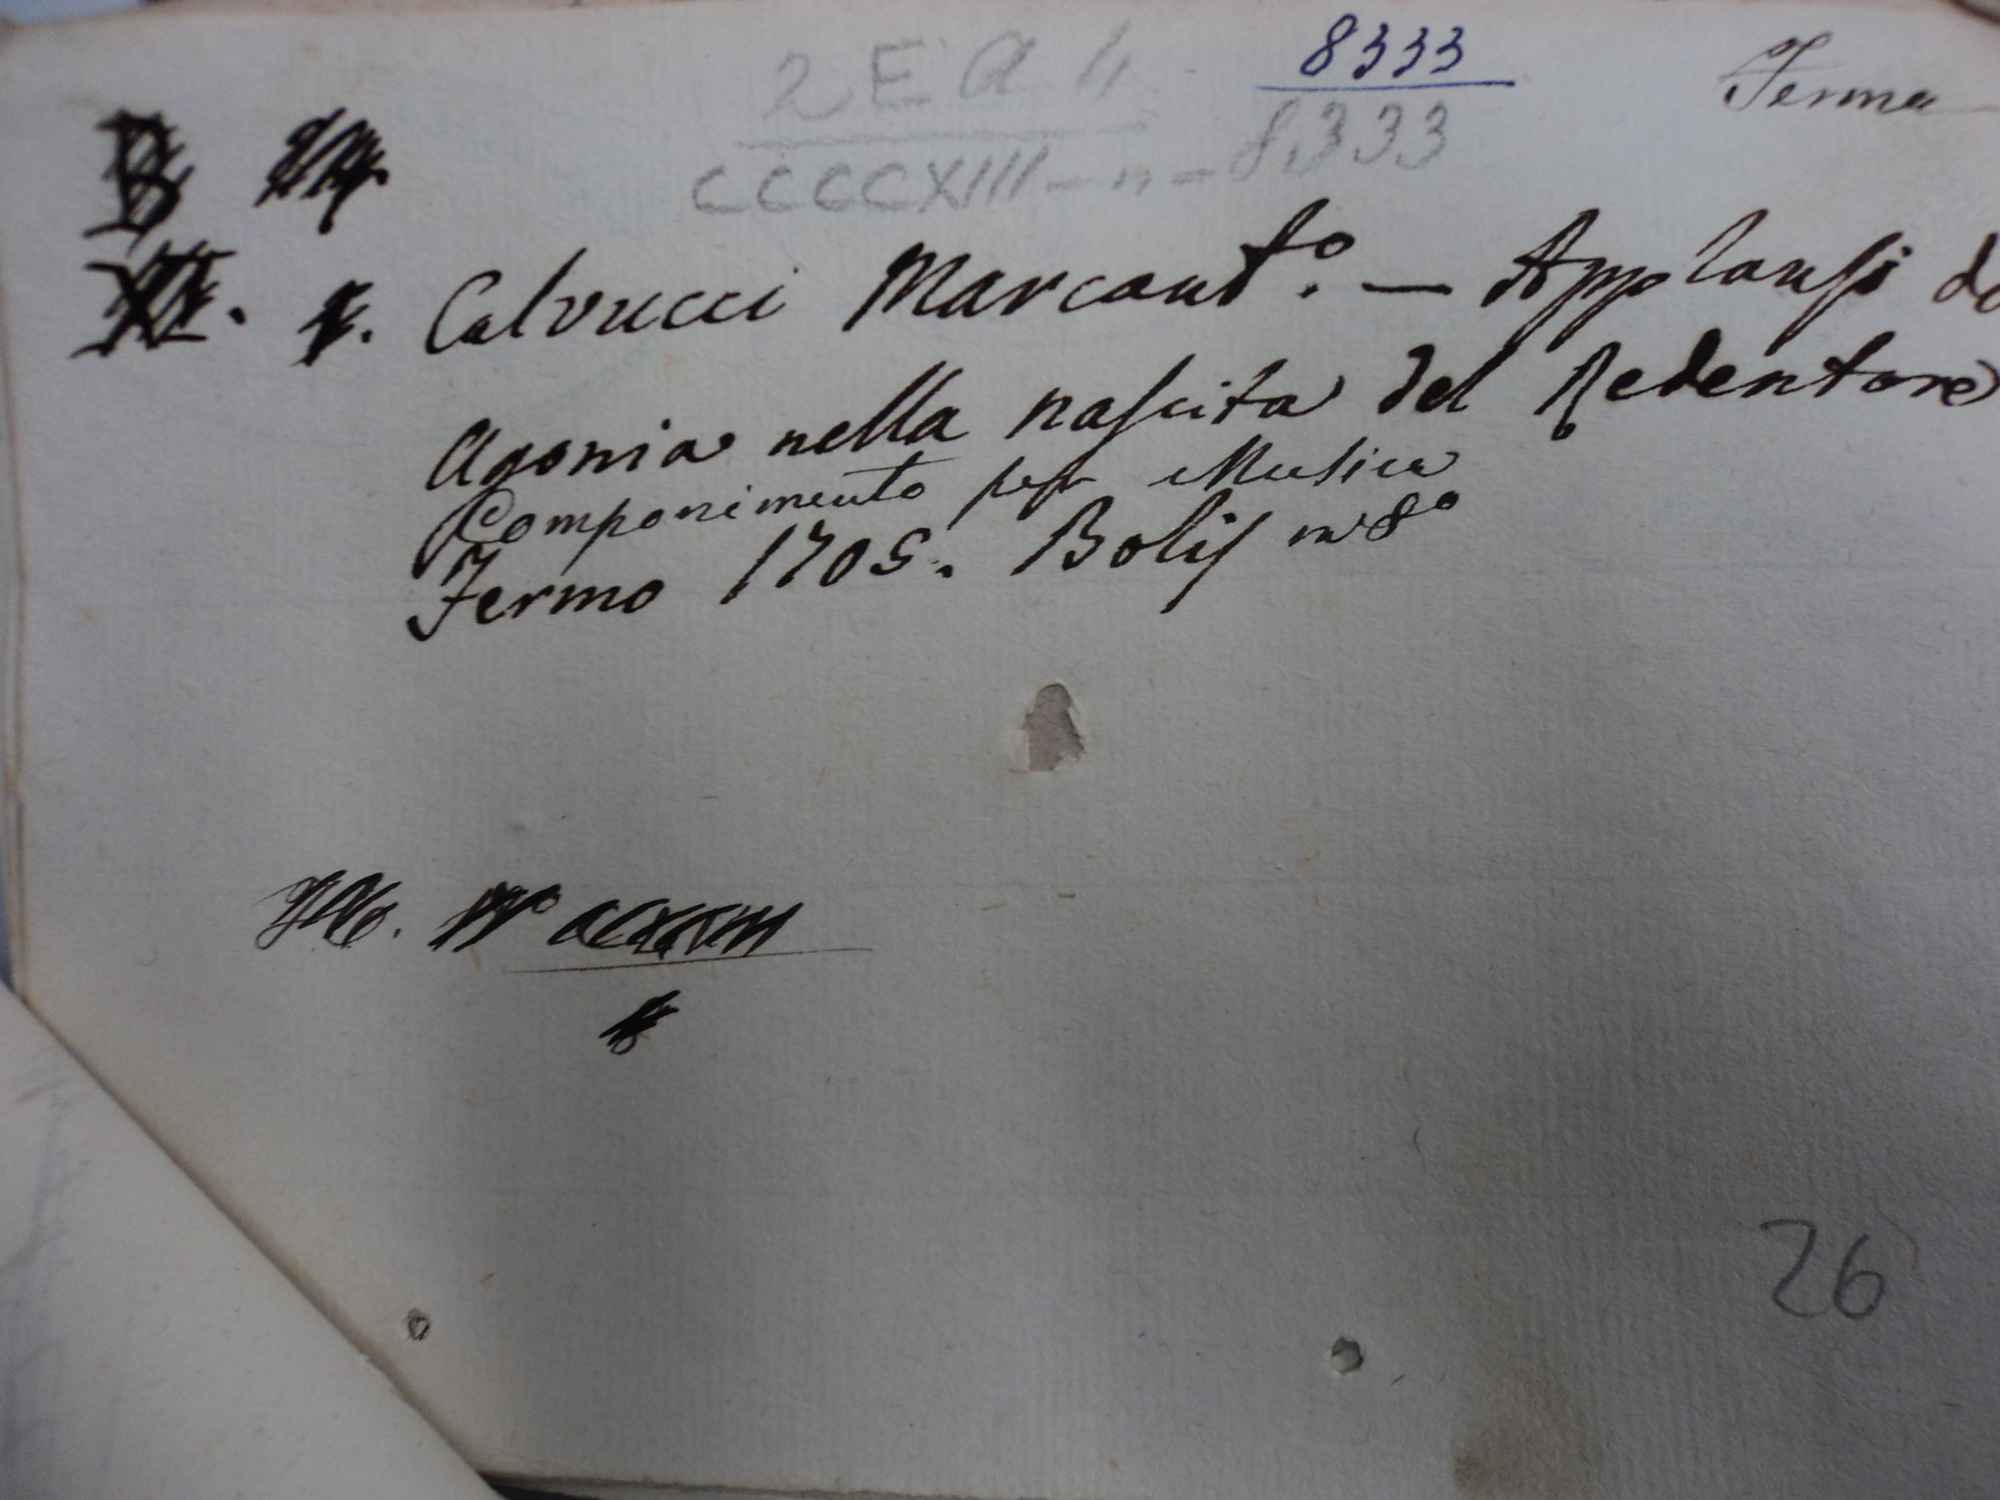 2 E A 4 8333 Ferma
CCCCXIII - n - 8333
B
Calvucci Marcant.º — Applausi
Agonia nella nascita del Redentore
Componimento per Musica
Fermo 1705. Bolis in 8º
26